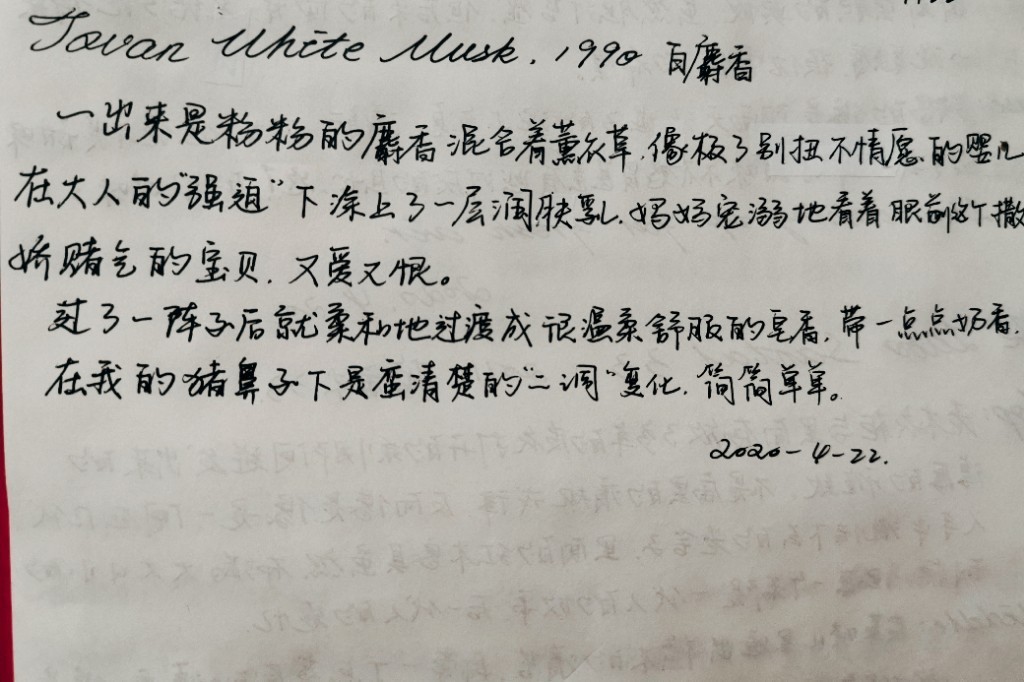 Jovan White Musk. 1990 白麝香
一出来是粉粉的麝香混合着薰衣草,像极了别扭不情愿的婴儿
在大人的“强迫”下涂上了一层润肤乳.妈妈宠溺地看着眼前这个撒
娇赌气的宝贝,又爱又恨。
过了一阵子后就柔和地过渡成很温柔舒服的皂香,带一点点奶香,
在我的猪鼻子下是蛮清楚的“二调”变化,简简单单。
2020-4-22.